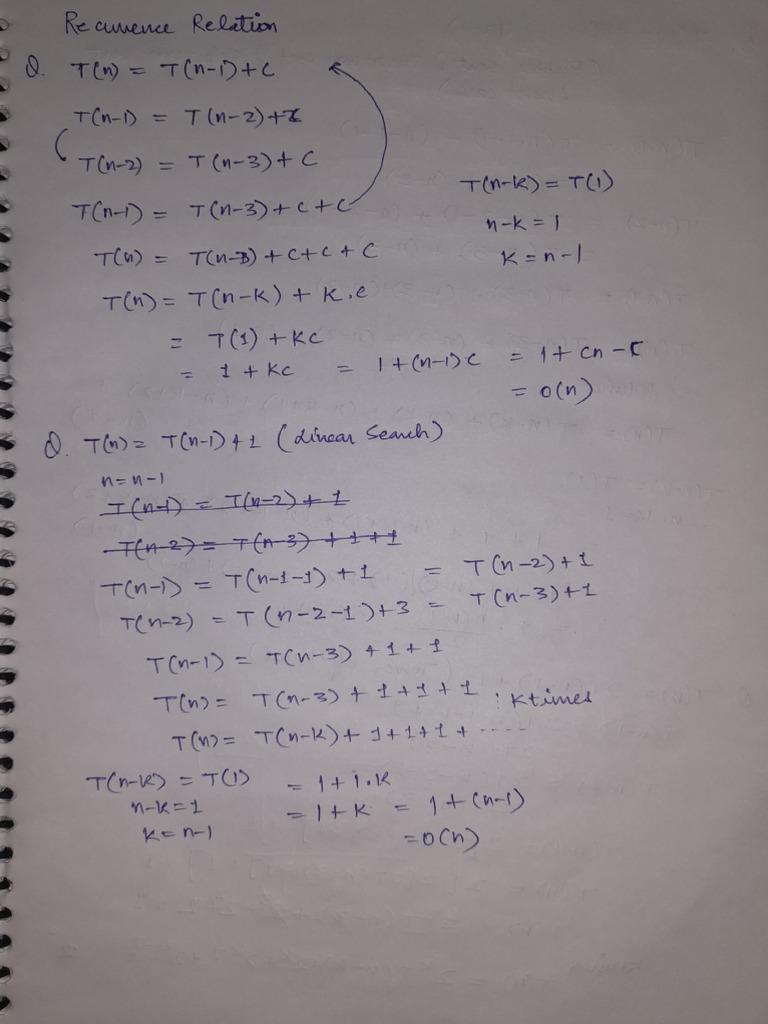 Recurrence Relation
Q. T(n) = T(n-1)+C
T(n-1) = T(n-2)+C
T(n-2) = T(n-3)+C
T(n-1) = T(n-3)+C+C
T(n) = T(n-3)+C+C+C
T(n) = T(n-K) + K.C
= T(1) + KC
= 1 + KC = 1+(n-1)C = 1+Cn-C
= O(n)
T(n-K) = T(1)
n-K = 1
K = n-1
Q. T(n) = T(n-1)+1 (Linear Search)
n=n-1
T(n-1) = T(n-2)+1
T(n-2) = T(n-3)+1+1
T(n-1) = T(n-1-1)+1 = T(n-2)+1
T(n-2) = T(n-2-1)+3 = T(n-3)+1
T(n-1) = T(n-3)+1+1
T(n) = T(n-3)+1+1+1 : K times
T(n) = T(n-K)+1+1+1+....
T(n-K) = T(1) = 1+1.K
n-K=1 = 1+K = 1+(n-1)
K=n-1 = O(n)